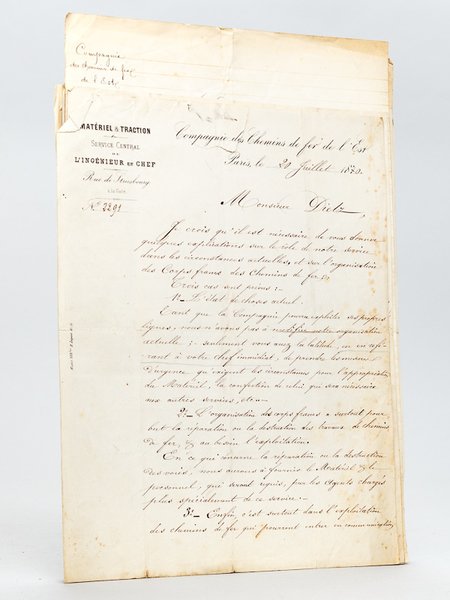 Compagnie
des chemins de fer
de l'Est
MATÉRIEL & TRACTION
SERVICE CENTRAL
DE
L'INGÉNIEUR EN CHEF
Rue de Strasbourg
à la Gare
N° 3291
Compagnie des Chemins de fer de l'Est
Paris, le 29 Juillet 1870.
Monsieur Dietz,
Je crois qu'il est nécessaire de vous donner
quelques explications sur le rôle de notre service
dans les circonstances actuelles, et sur l'organisation
des Corps francs des Chemins de fer.
Trois cas sont prévus :
1° L'état de choses actuel.
Tant que la Compagnie pourra exploiter ses propres
lignes, nous n'avons pas à rectifier notre organisation
actuelle ; seulement vous avez la latitude, en en réfé-
rant à votre chef immédiat, de prendre les mesures
d'urgence qu'exigent les circonstances pour l'appropriation
du Matériel, la confection de celui qui sera nécessaire
aux autres services, etc.
2° L'organisation des corps francs a surtout pour
but la réparation ou la destruction des travaux de chemins
de fer, & au besoin l'exploitation.
En ce qui concerne la réparation ou la destruction
des voies, nous aurons à fournir le Matériel & le
personnel, qui seront requis, par les Agents chargés
plus spécialement de ce service.
3° Enfin, c'est surtout dans l'exploitation
des chemins de fer qui pourront entrer en communication